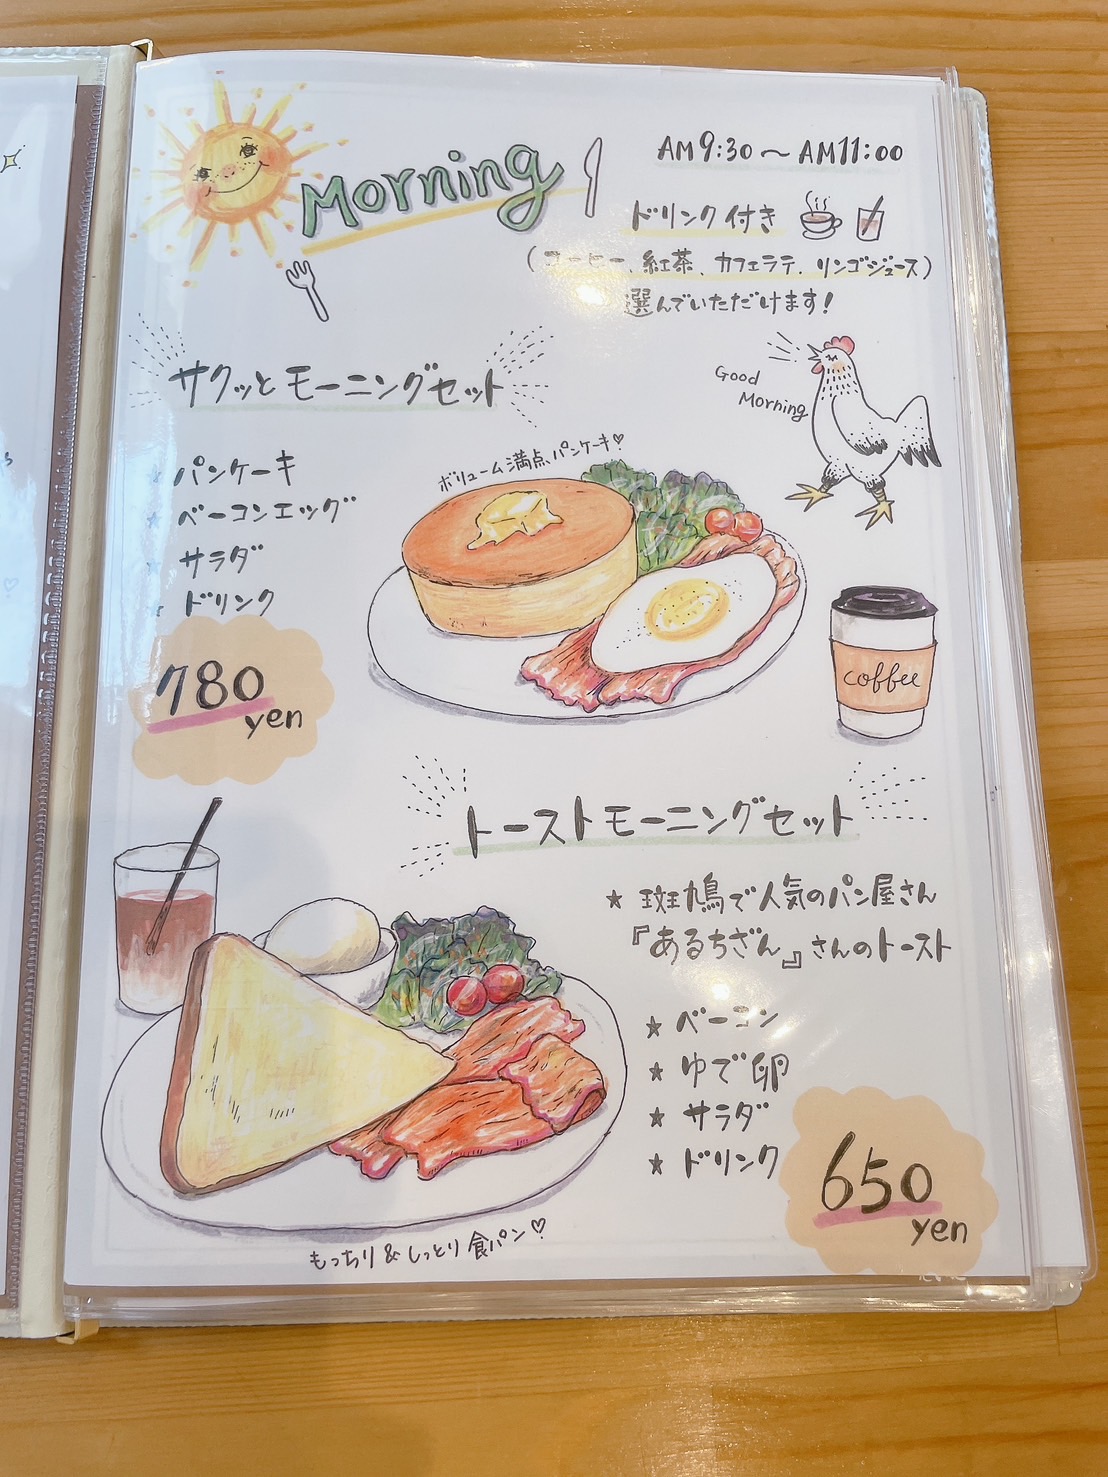 Morning
AM9:30～AM11:00
ドリンク付き
(コーヒー、紅茶、カフェラテ、リンゴジュース)
選んでいただけます!
サクッとモーニングセット
Good
Morning
★ パンケーキ
★ ベーコンエッグ
★ サラダ
★ ドリンク
ボリューム満点、パンケーキ♡
780
yen
coffee
トーストモーニングセット
★ 斑鳩で人気のパン屋さん
『あるちざん』さんのトースト
★ ベーコン
★ ゆで卵
★ サラダ
★ ドリンク
650
yen
もっちり&しっとり食パン♡